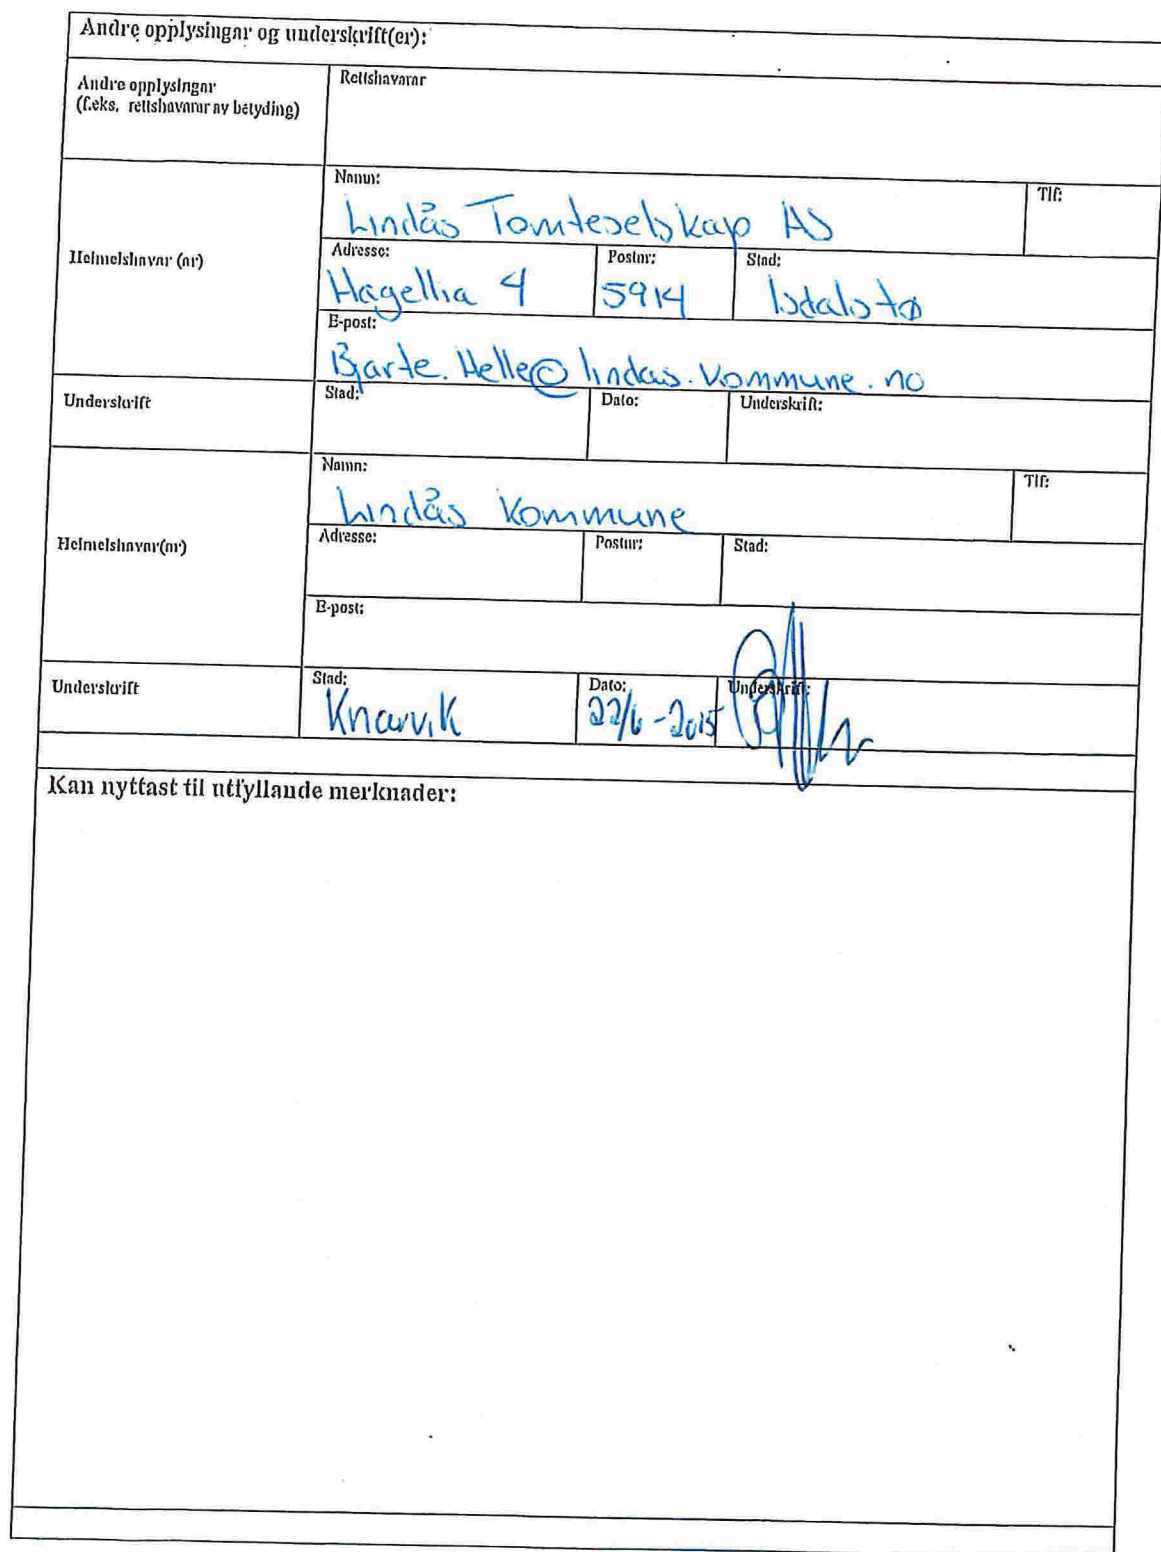 Andre opplysingar og underskrift(er):
Andre opplysingar
(f.eks. rettshavarar av betyding)
Rettshavarar
Heimelshavar (ar)
Namn:
Lindås Tomteselskap AS
Tlf:
Adresse:
Hagellia 4
Postnr:
5914
Stad:
Isdalstø
E-post:
Bjarte.Helle@lindas.kommune.no
Underskrift
Stad:
Dato:
Underskrift:
Heimelshavar(ar)
Namn:
Lindås Kommune
Tlf:
Adresse:
Postnr:
Stad:
E-post:
Underskrift
Stad:
Knarvik
Dato:
22/6-2015
Underskrift:
Kan nyttast til utfyllande merknader: